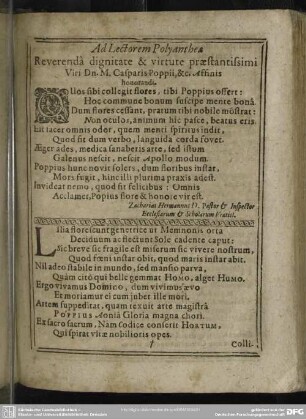 Ad Lectorem Polyantheæ
Reverendâ dignitate & virtute præstantissimi
Viri Dn. M. Casparis Poppii, &c. Affinis
honorandi.
QUos sibi collegit flores, tibi Poppius offert:
Hoc commune bonum suscipe mente bonâ.
Dum flores cessant, pratum tibi nobile mõstrat:
Non oculos, animum hîc pasce, beatus eris.
Est lacer omnis odor, quem menti spiritus indit,
Quod sit dum verbo, languida corda fovet.
Æger ades, medica sanaberis arte, sed istum
Galenus nescit, nescit Apollo modum.
Poppius hunc novit solers, dum floribus instat,
Mors fugit, hincilli plurima praxis adest.
Invideat nemo, quod sit felicibus: Omnis
Acclamet, Popius flore & honore viret.
Zacharias Hermannus D. Pastor & Inspector
Ecclesiarum & Scholarum Vratisl.
LIlia florescunt genetrice ut Memnonis orta
Deciduum ac flectunt Sole cadente caput:
Sic breve sic fragile est miserum sic vivere nostrum,
Quod fœni instar obit, quod maris instar abit.
Nil adeo stabile in mundo, sed mansio parva,
Quàm citò qui belle gemmat Homo, alget Humo.
Ergo vivamus Domino, dum vivimus ævo
Et moriamur ei cum jubet ille mori.
Artem suppeditat, quam texuit arte magistrâ
Poppius Aoniâ Gloria magna chori.
Ex sacro sacrum, Nam Codice conserit Hortum,
Qui spirat vitæ nobilioris opes.
Colli-